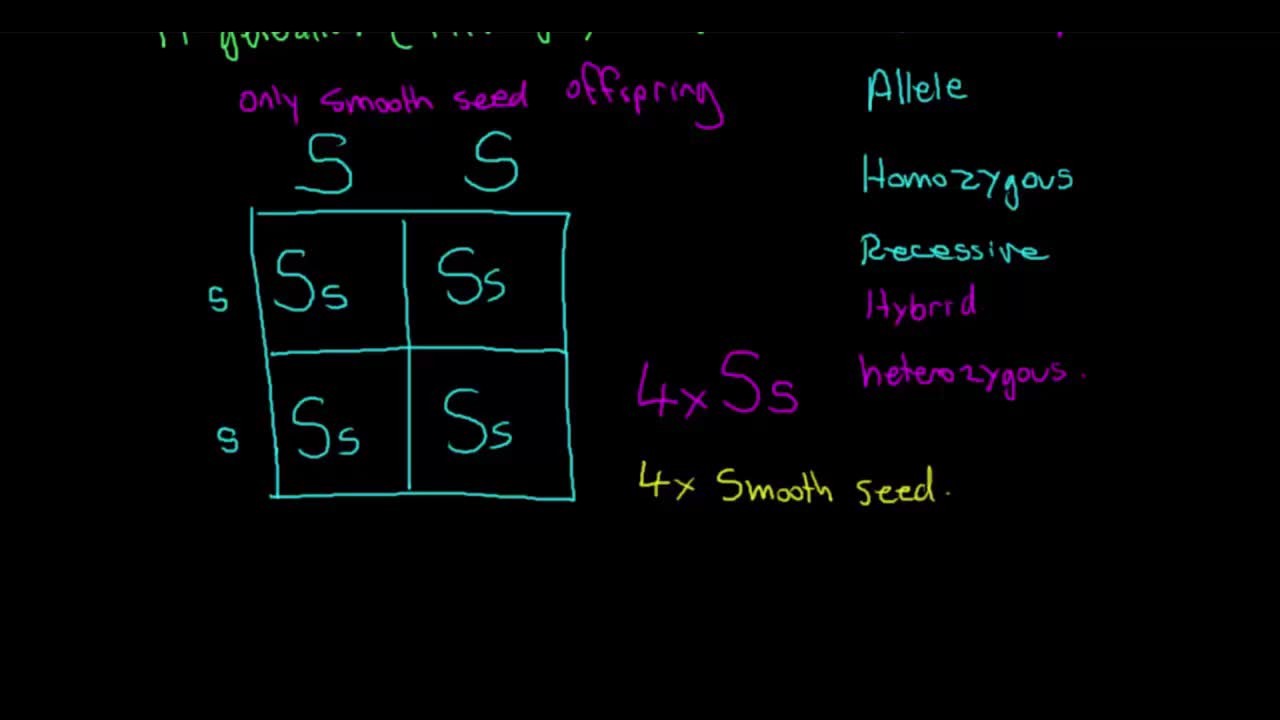 only smooth seed offspring
Allele
S S
Homozygous
Recessive
s Ss Ss
Hybrid
4x Ss
heterozygous.
s Ss Ss
4x Smooth seed.